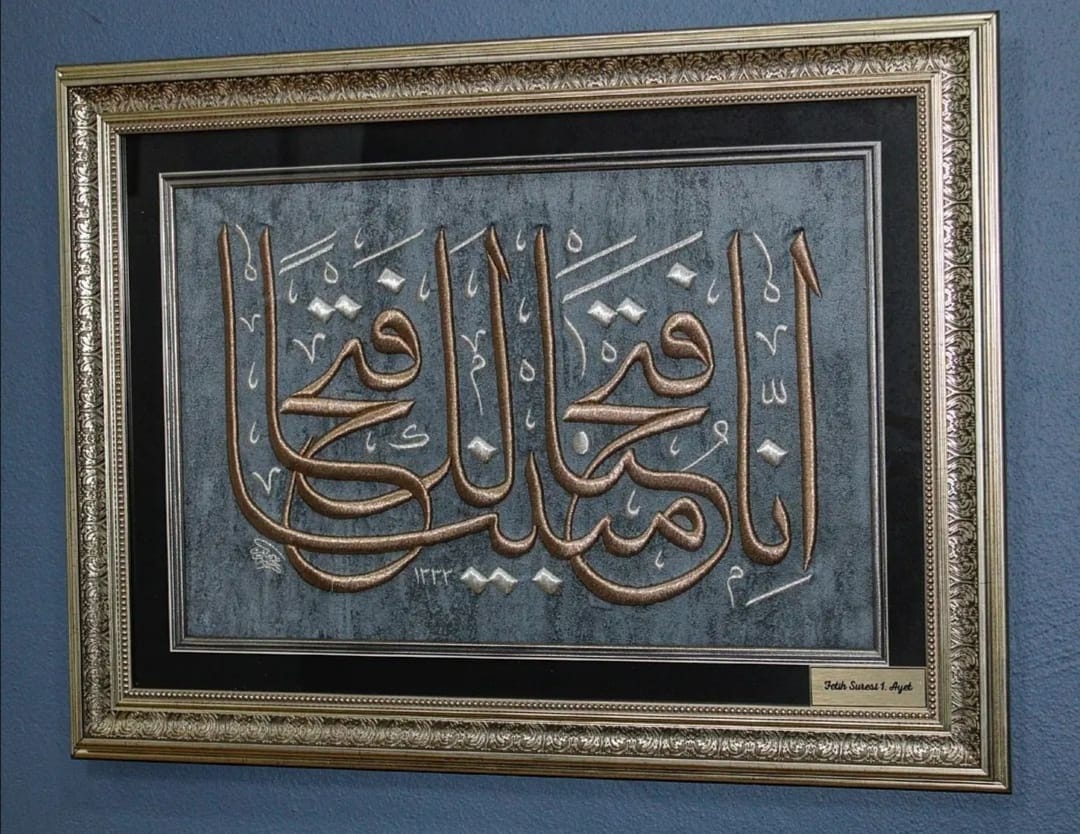 إِنَّا فَتَحْنَا لَكَ فَتْحًا مُبِينًا
١٣٣٣
Fetih Suresi 1. Ayet